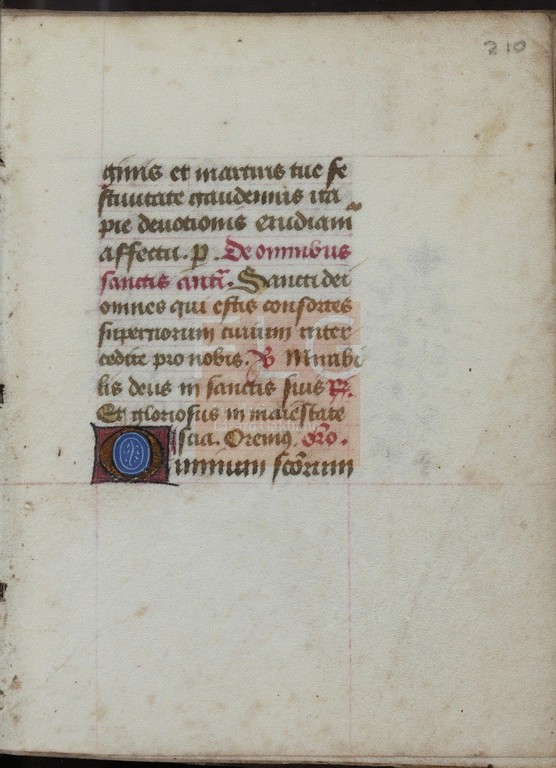 210
ginis et martiris tue fe
stiuitate gaudemus ita
pie deuotionis erudiam̄
affectu. p. De omnibus
sanctis antī. Sancti dei
omnes qui estis consortes
supernorum ciuium inter
cedite pro nobis. V̄ Mirabi
lis deus in sanctis suis R̄.
Et gloriosus in maiestate
sua. Oremꝰ. Or̄o.
Omnium sc̄orum
Lázaro Galdiano